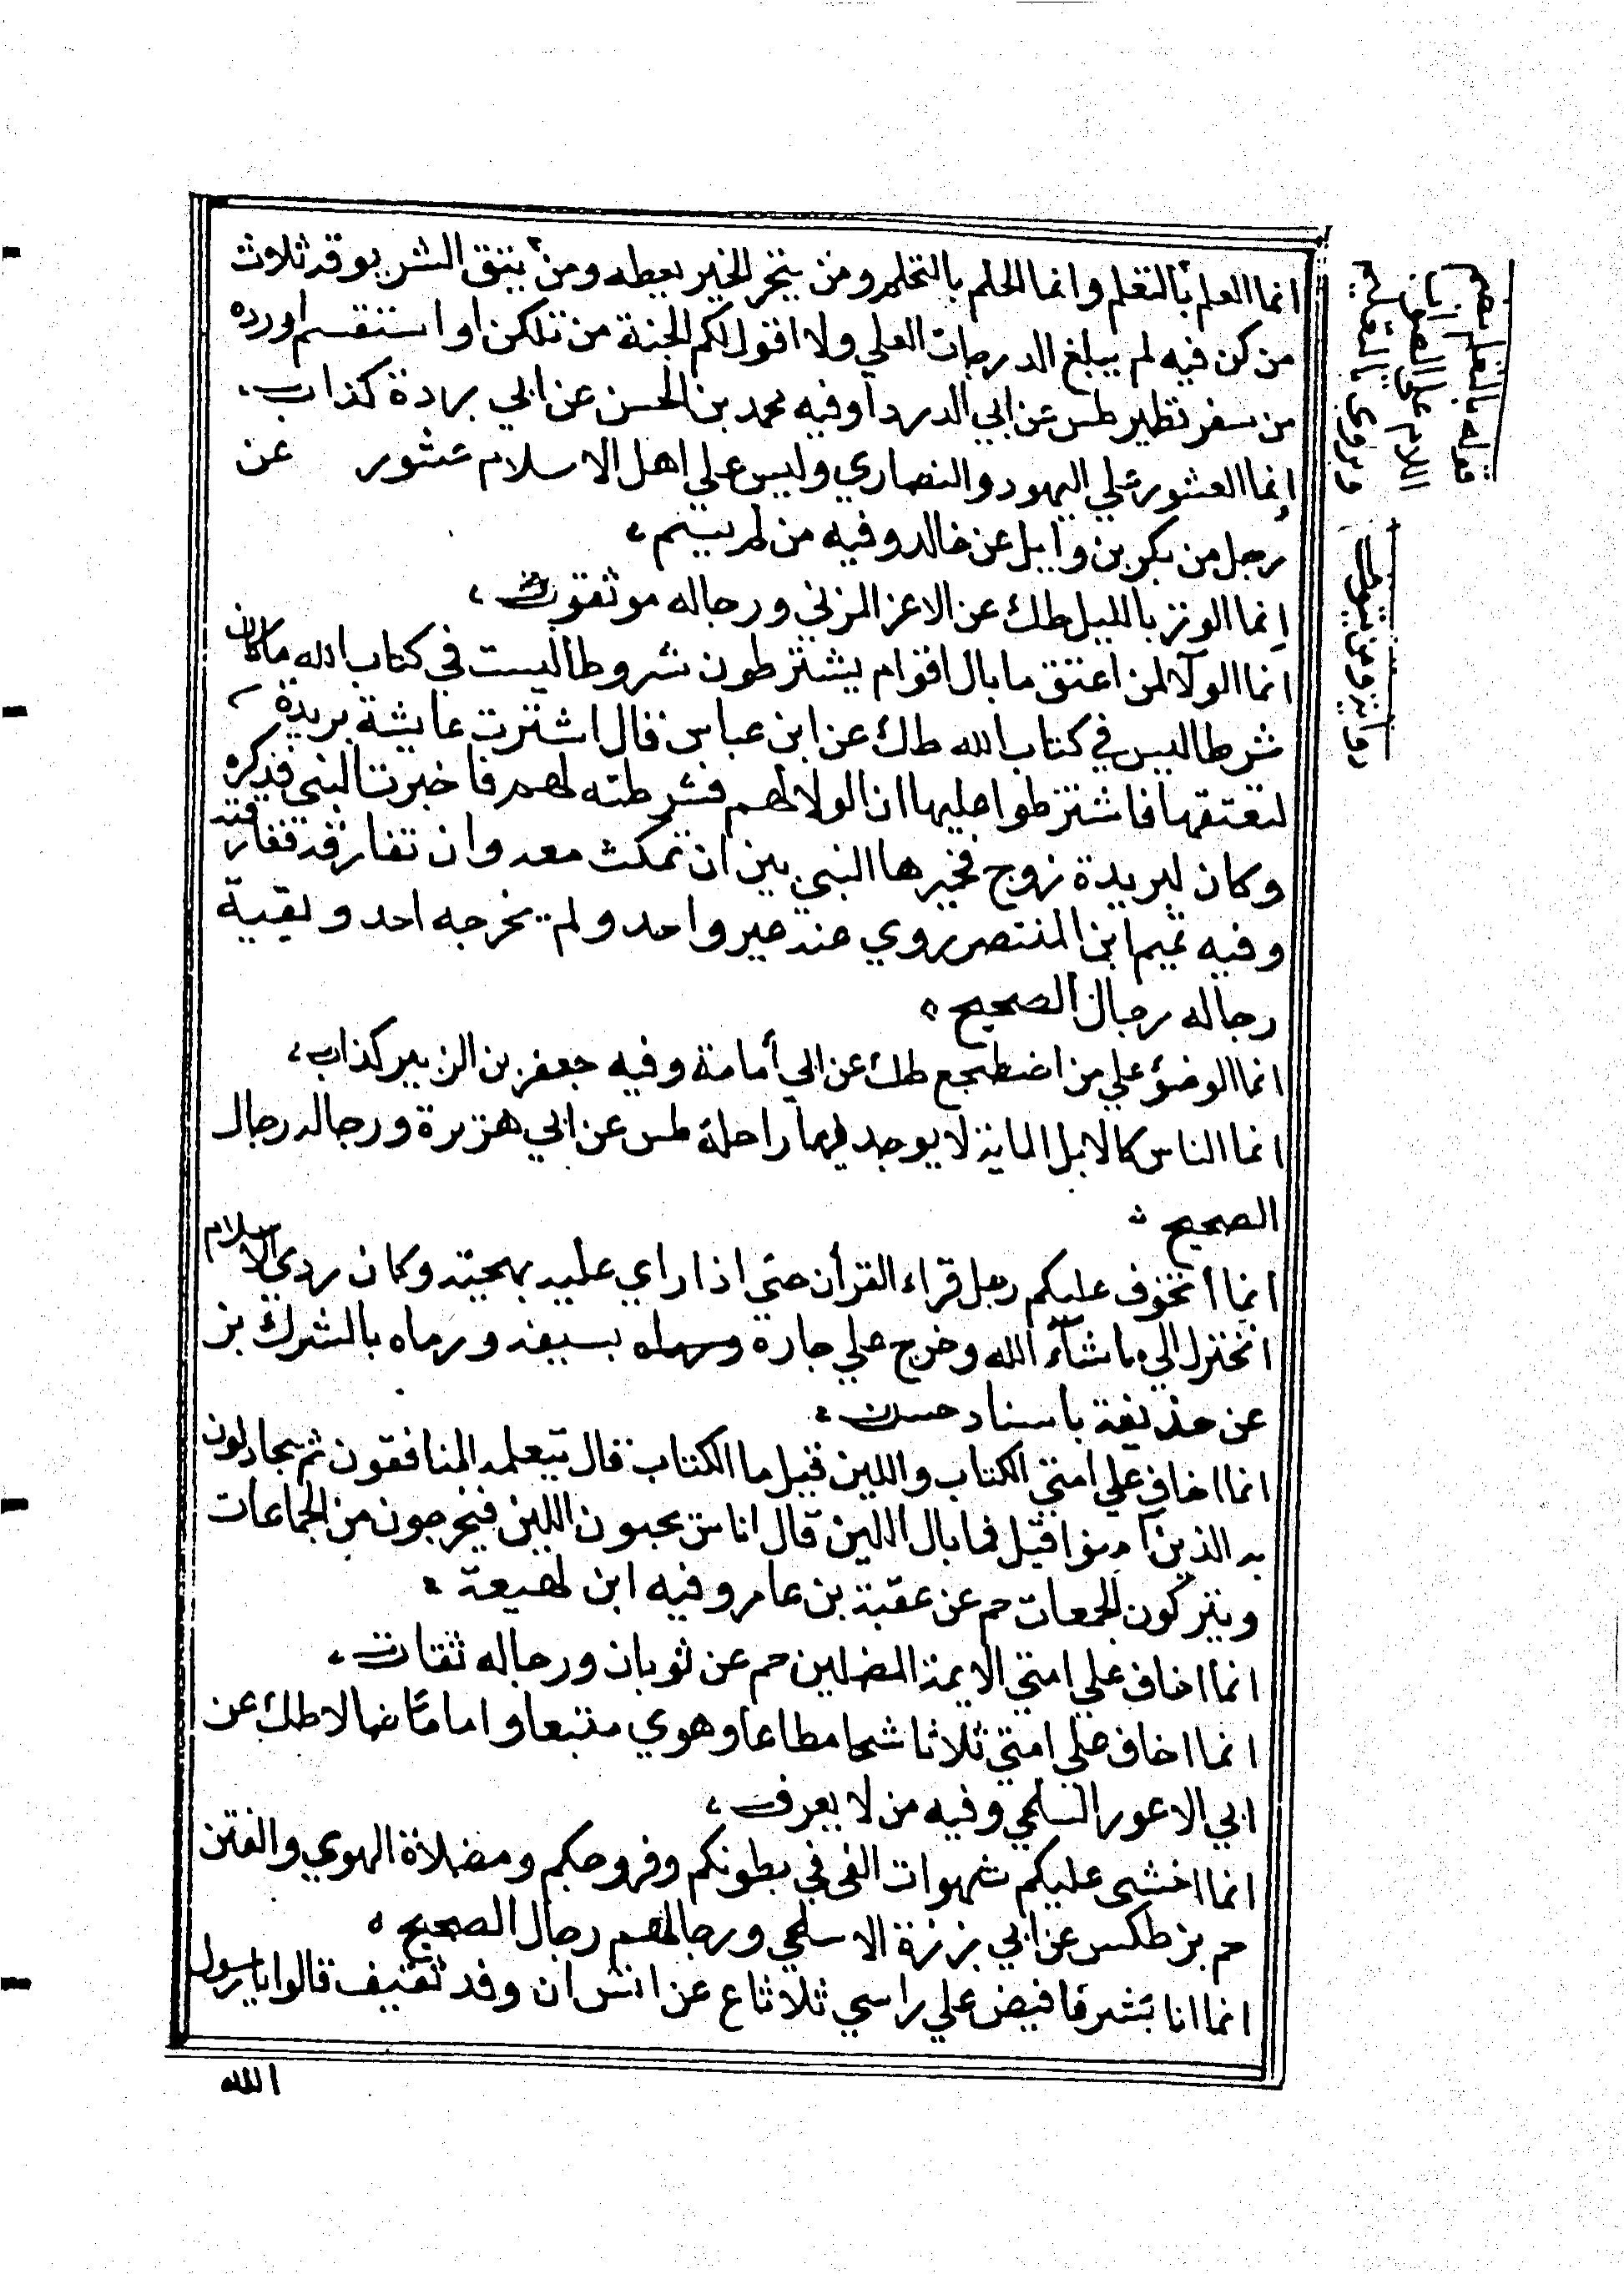 انما العلم بالتعلم وانما الحلم بالتحلم ومن يتحر الخير يعطه ومن يتق الشر يوقه ثلاث
من كن فيه لم يبلغ الدرجات العلي ولا اقول لكم الجنة من تكهن او استقسم او رده
من سفر تطير طس عن ابي الدرداء وفيه محمد بن الحسن عن ابي بردة كذاب
إنما العشور علي اليهود والنصاري وليس علي اهل الاسلام عشور عن
رجل من بكر بن وايل عن خاله وفيه من لم يسم
إنما الوتر بالليل طك عن الاغر المزني ورجاله موثقون
انما الولآ لمن اعتق ما بال اقوام يشترطون شروطا ليست في كتاب الله ما كان
شرطا ليس في كتاب الله طك عن ابن عباس قال اشترت عايشة بريدة
لتعتقها فاشترطوا عليها ان الولا لهم فشرطته لهم فاخبرت النبي فذكره
وكان لبريدة زوج فخيرها النبي بين ان تمكث معه وان تفارقه ففارقته
وفيه تميم ابن المنتصر روي عنه غير واحد ولم يخرجه احد وبقية
رجاله رجال الصحيح
انما الوضؤ علي من اضطجع طك عن ابي أمامة وفيه جعفر بن الزبير كذاب
انما الناس كالابل الماية لا يوجد فيها راحلة طس عن ابي هريرة ورجاله رجال
الصحيح
انما أتخوف عليكم رجل قراء القرأن حتي اذا راي عليه بهجته وكان ردي الاسلام
اختزل الي ما شآء الله وخرج علي جاره بسيفه ورماه بالشرك بز
عن حذيفة باسناد حسن
انما اخاف علي امتي الكتاب واللبن قيل ما الكتاب قال يتعلمه المنافقون ثم يجادلون
به الذين آمنوا قيل فما بال اللبن قال اناس يحبون اللبن فيخرجون من الجماعات
ويتركون الجمعات حم عن عقبة بن عامر وفيه ابن لهيعة
انما اخاف علي امتي الايمة المضلين حم عن ثوبان ورجاله ثقات
انما اخاف علي امتي ثلاثا شحا مطاعا وهوي متبعا واماما ضالا طك عن
ابي الاعور السلمي وفيه من لا يعرف
انما اخشى عليكم شهوات الغي في بطونكم وفروجكم ومضلاة الهوي والفتن
حم بز طكس عن ابي برزة الاسلمي ورجالهم رجال الصحيح
انما انا بشر فافيض علي راسي ثلاثا ع عن انس ان وفد ثقيف قالوا يا رسول
الله
قوله بالتعلم اي بضم
اللام على الصواب
ويروى بالتعليم